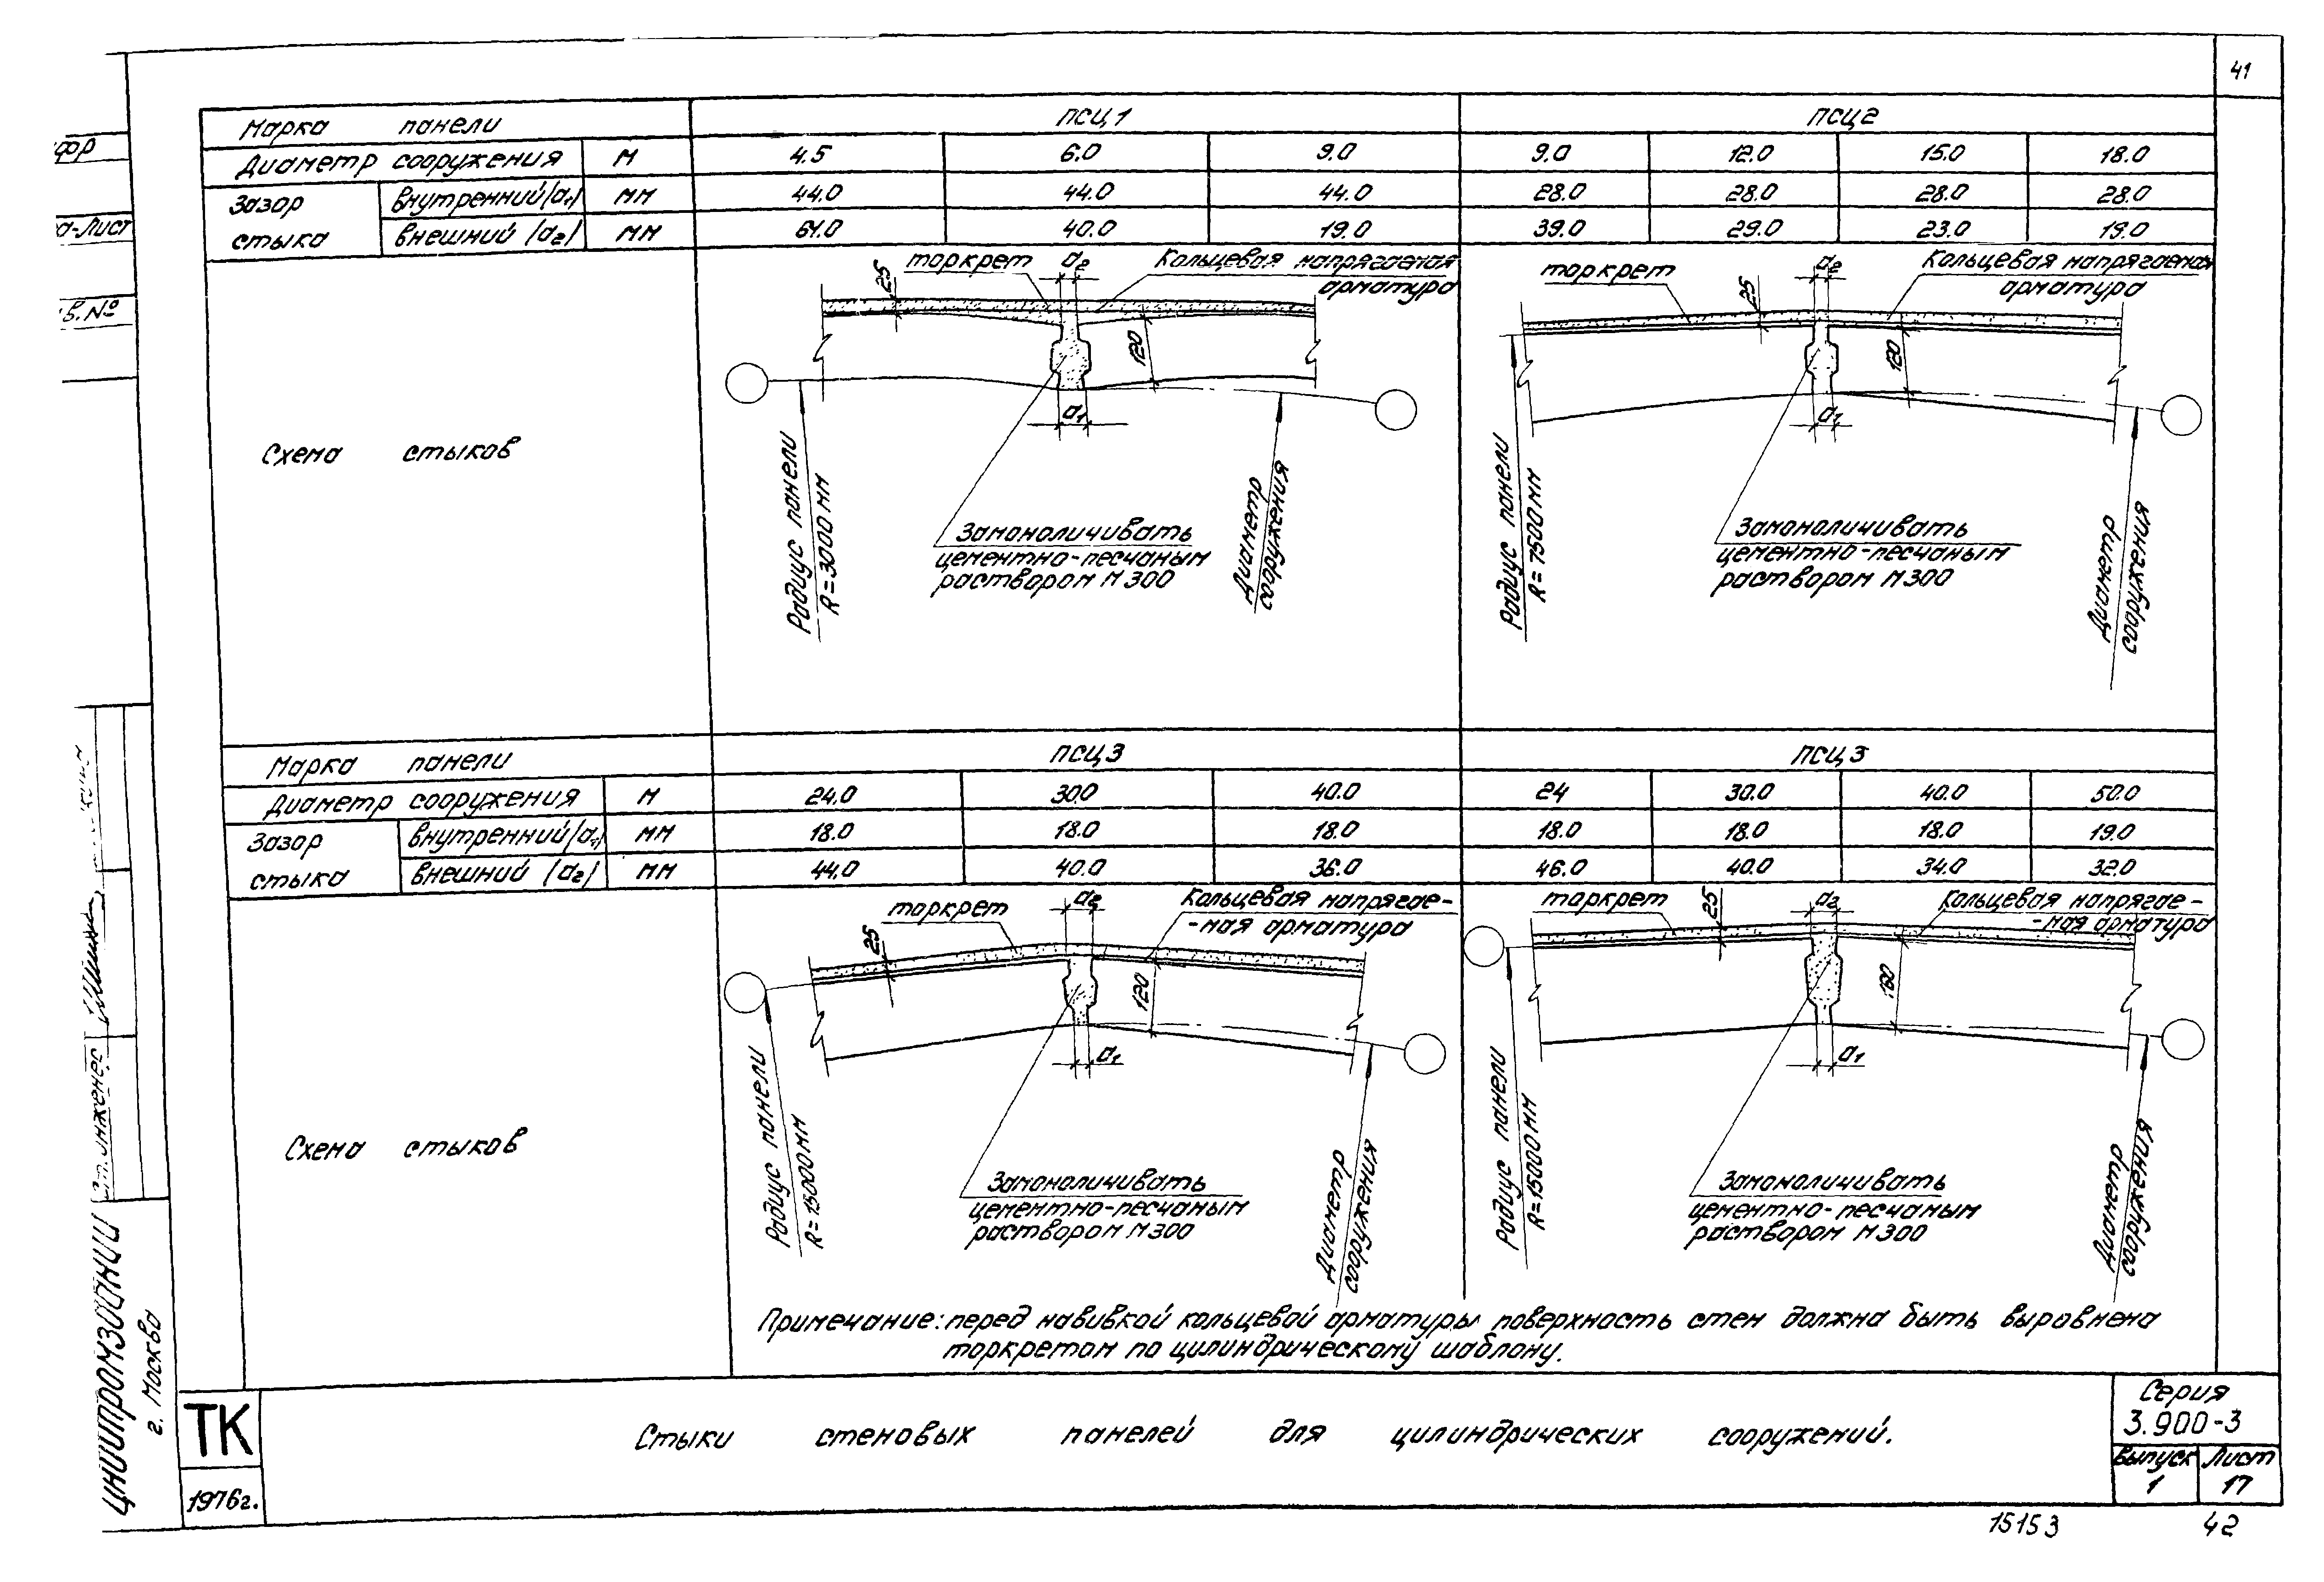 41
Марка панели ПСЦ1 ПСЦ2
Диаметр сооружения м 4.5 6.0 9.0 9.0 12.0 15.0 18.0
Зазор стыка внутренний (а₁) мм 44.0 44.0 44.0 28.0 28.0 28.0 28.0
внешний (а₂) мм 61.0 40.0 19.0 39.0 29.0 23.0 19.0
Схема стыков
25
торкрет
а₂
Кольцевая напрягаемая
арматура
120
а₁
Радиус панели
R=3000мм
Замоноличивать
цементно-песчаным
раствором М300
Диаметр
сооружения
торкрет
25
а₂
Кольцевая напрягаемая
арматура
120
а₁
Радиус панели
R=7500мм
Замоноличивать
цементно-песчаным
раствором М300
Диаметр
сооружения
Марка панели ПСЦ3 ПСЦ3
Диаметр сооружения м 24.0 30.0 40.0 24 30.0 40.0 50.0
Зазор стыка внутренний (а₁) мм 18.0 18.0 18.0 18.0 18.0 18.0 19.0
внешний (а₂) мм 44.0 40.0 36.0 46.0 40.0 34.0 32.0
Схема стыков
25
торкрет
а₂
Кольцевая напрягае-
-мая арматура
120
а₁
Радиус панели
R=15000мм
Замоноличивать
цементно-песчаным
раствором М300
Диаметр
сооружения
торкрет
25
а₂
Кольцевая напрягае-
-мая арматура
160
а₁
Радиус панели
R=15000мм
Замоноличивать
цементно-песчаным
раствором М300
Диаметр
сооружения
Примечание: перед навивкой кольцевой арматуры поверхность стен должна быть выровнена
торкретом по цилиндрическому шаблону.
ЦНИИПРОМЗДАНИЙ
г. Москва
Ст. инженер
ТК
1976г.
Стыки стеновых панелей для цилиндрических сооружений.
Серия
3.900-3
Выпуск
1
Лист
17
15153 42